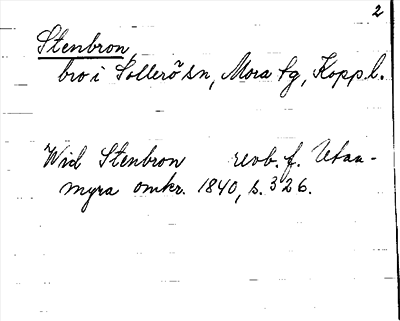 2
Stenbron
bro i Sollerö sn, Mora tg, Kopp.l.
Wid Stenbron revb. f. Utan-
myra omkr. 1840, s. 326.